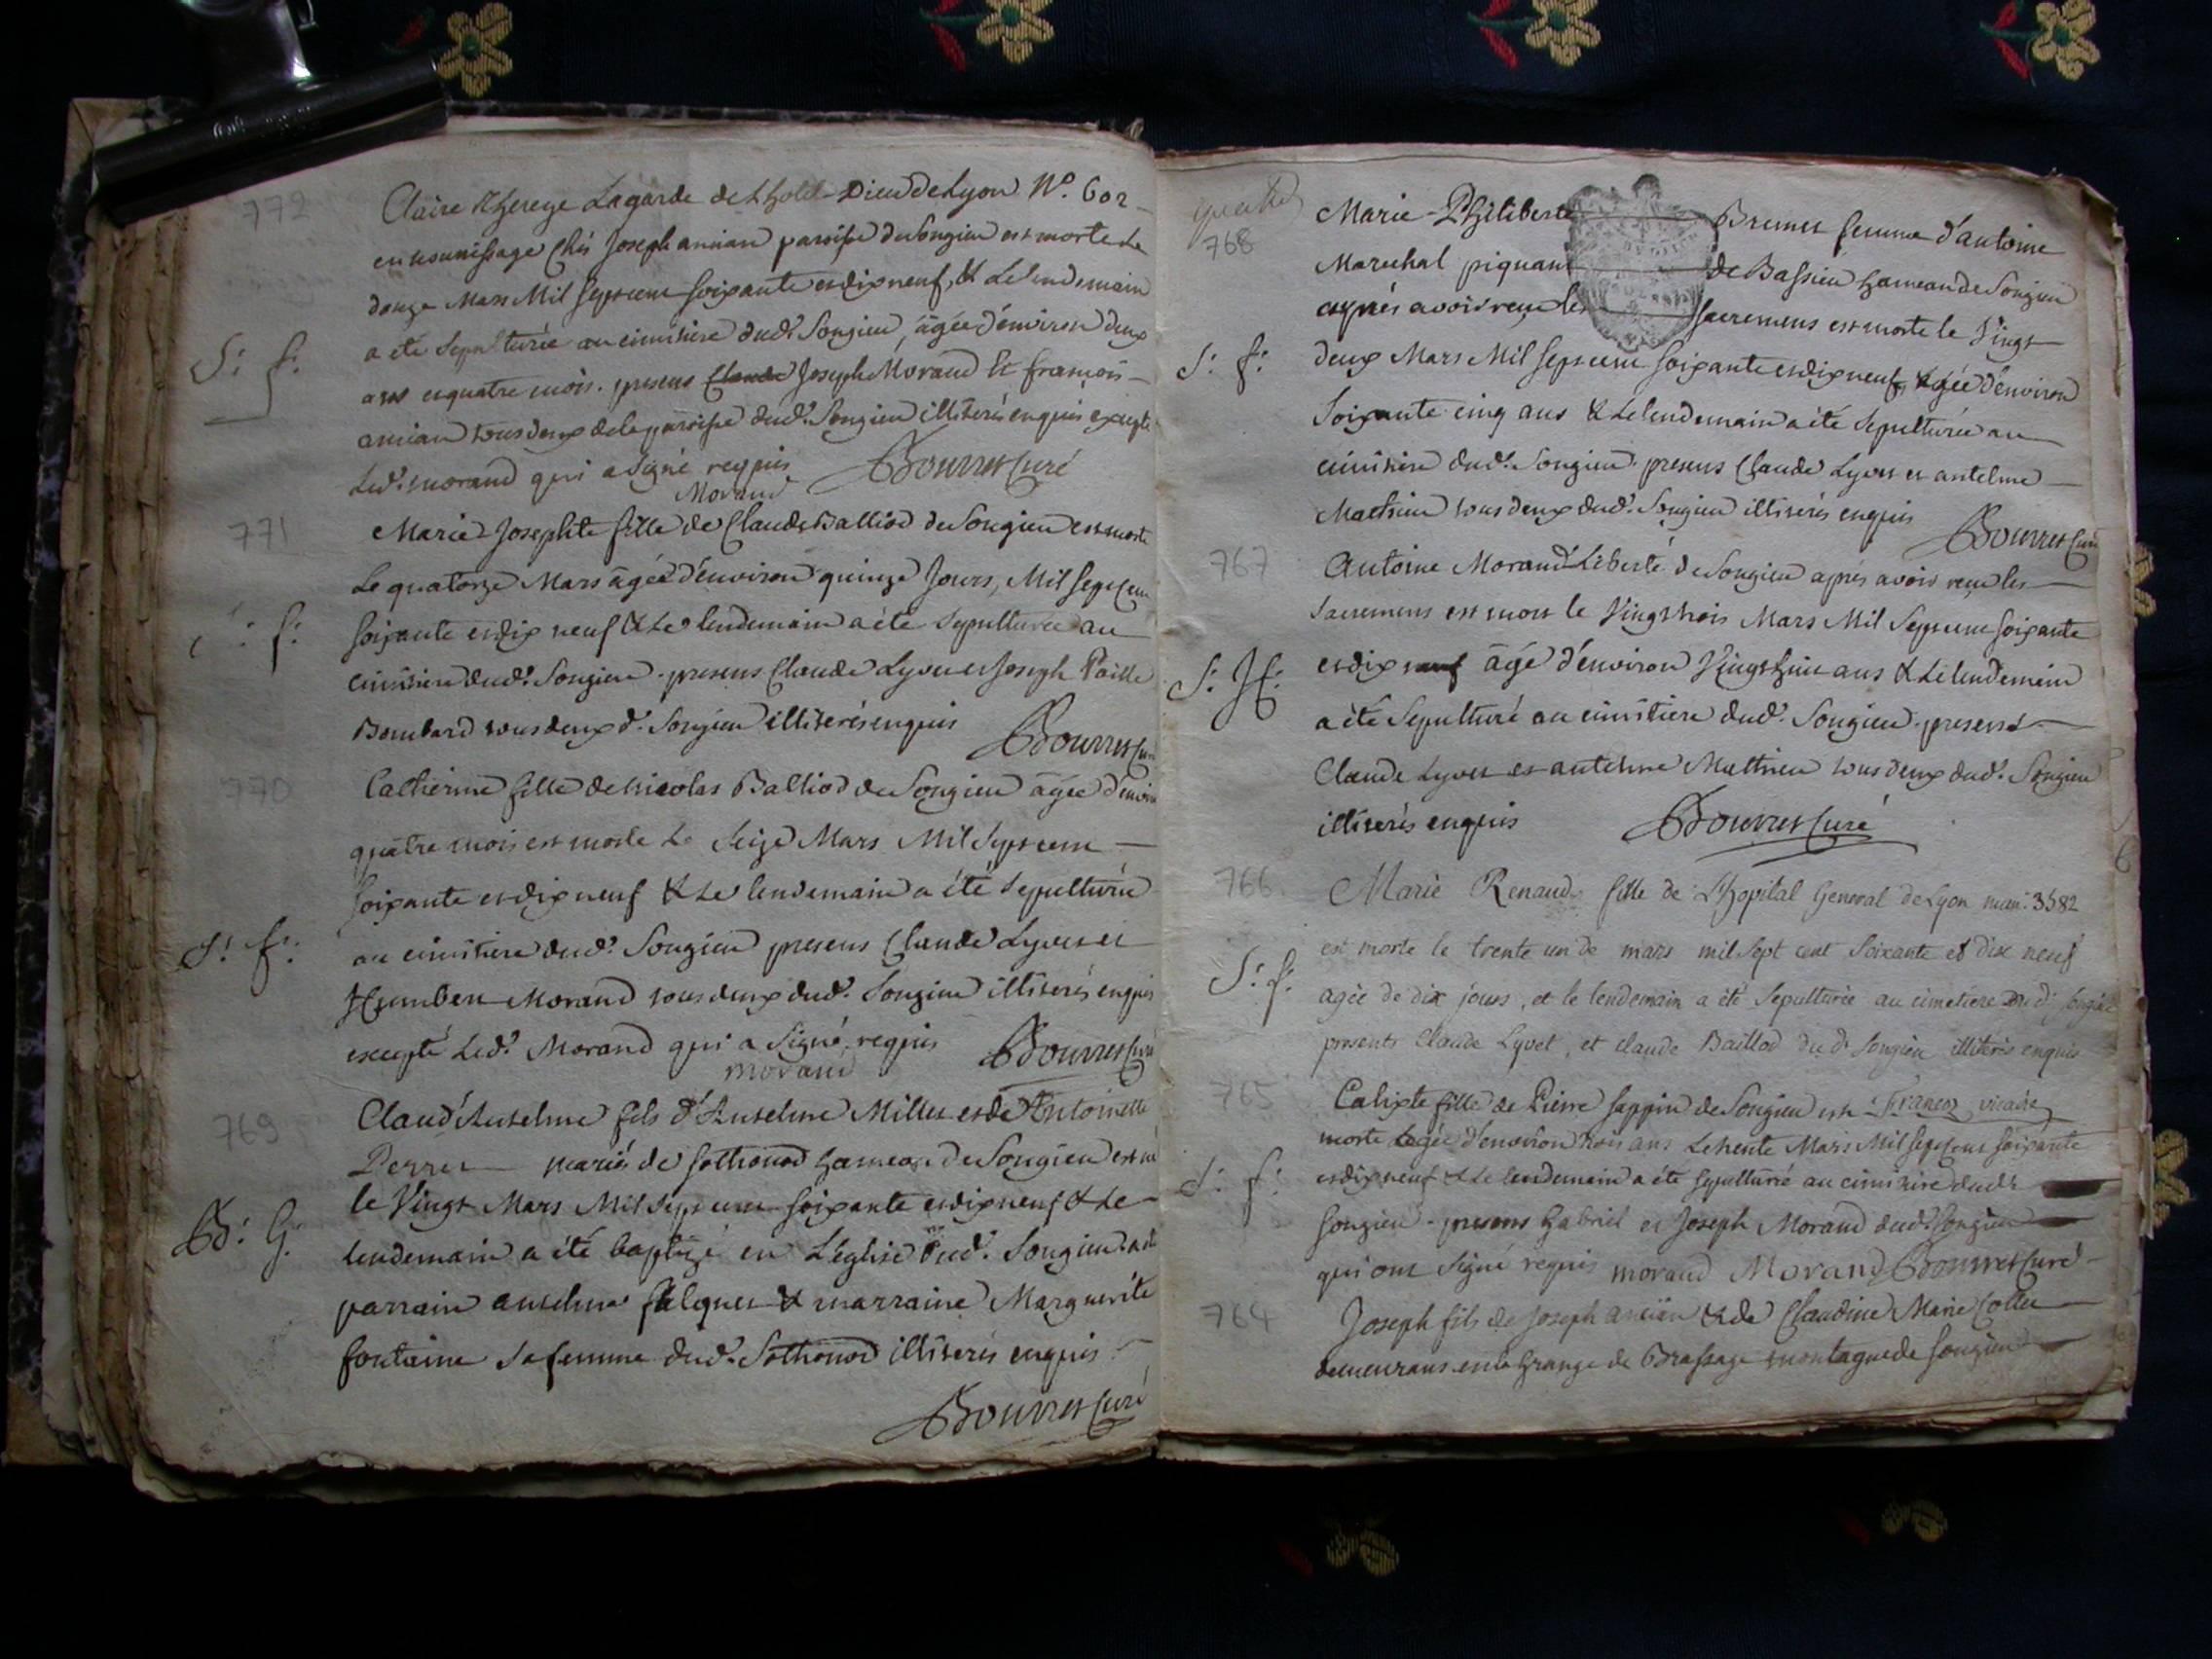 772
Claire Thereze Lagarde de Lhotel-Dieu de Lyon N°. 602
en nourrissage chés Joseph ancian paroisse de Songieu est morte le
douze Mars Mil sept cent soixante et dix neuf, & Le lendemain
a été sepulturée au cimitiere dud. Songieu, âgée d'environ deux
S: f:
ans et quatre mois. presens Claude Joseph Morand & françois
ancian tous deux de la paroisse dud. Songieu illiterés enquis excepté
Led. morand qui a signé requis Bourret Curé
Morand
771
Marie Josephte fille de Claude Balliod de Songieu est morte
Le quatorze Mars âgée d'environ quinze Jours, Mil sept Cent
S: f:
soixante et dix neuf & Le lendemain a été sepulturée au
cimitiere dud. Songieu. presens Claude Lyvet et Joseph Paille
Bombard tous deux d. Songieu illiterés enquis
Bourret Curé
770
Catherine fille de nicolas Balliod de Songieu âgée d'environ
quatre mois est morte Le seize Mars Mil sept cent
soixante et dix neuf & Le lendemain a été sepulturée
S: f:
au cimitiere dud. Songieu presens Claude Lyvet et
Humbert Morand tous deux dud. Songieu illiterés enquis
excepté Led. Morand qui a signé requis Bourret Curé
morand
769
Claud'Anselme fils d'Anselme Millet et de Antoinette
Perret mariés de sothonod hameau de Songieu est né
le Vingt Mars Mil sept cent soixante et dix neuf & Le
B: G:
lendemain a été baptizé en L'église dud. Songieu a été
parrain anselme falquet & marraine Marguerite
fontaine sa femme dud. Sothonod illiterés enquis
Bourret Curé
768
Marie-Philiberte Brunet femme d'antoine
Marechal piquant de Bassieu hameau de Songieu
après avoir reçu les sacremens est morte le Vingt
S: f:
deux Mars Mil sept cent soixante et dix neuf, âgée d'environ
Soixante cinq ans & Le lendemain a été sepulturée au
cimitiere dud. Songieu. presens Claude Lyvet et antelme
Mathieu tous deux dud. Songieu illiterés enquis
Bourret Curé
767
Antoine Morand Liberté de Songieu après avoir reçu les
sacremens est mort le Vingt trois Mars Mil Sept cent soixante
S: H:
et dix neuf âgé d'environ Vingt huit ans & Le lendemain
a été sepulturé au cimitiere dud. Songieu. presens
Claude Lyvet et antelme Mathieu tous deux dud. Songieu
illiterés enquis Bourret Curé
766
Marie Renaud fille de L'hopital General de Lyon num: 3582
est morte le trente un de mars mil sept cent soixante et dix neuf
S: f:
agée de dix jours, et le lendemain a été sepulturée au cimetiere du d. songieu
presents Claude Lyvet, et claude Baillod du d. songieu illiterés enquis
765
Calixte fille de Pierre sappin de Songieu est francoz vicaire
morte âgée d'environ trois ans Le trente Mars Mil sept Cent soixante
S: f:
et dix neuf & Le lendemain a été sepulturée au cimitiere dud.
Songieu. presens Gabriel et Joseph Morand dud. Songieu
qui ont signé requis morand Morand Bourret Curé
764
Joseph fils de Joseph ancian & de Claudine Marie Collet
demeurans en la Grange de Brassage montagne de Songieu